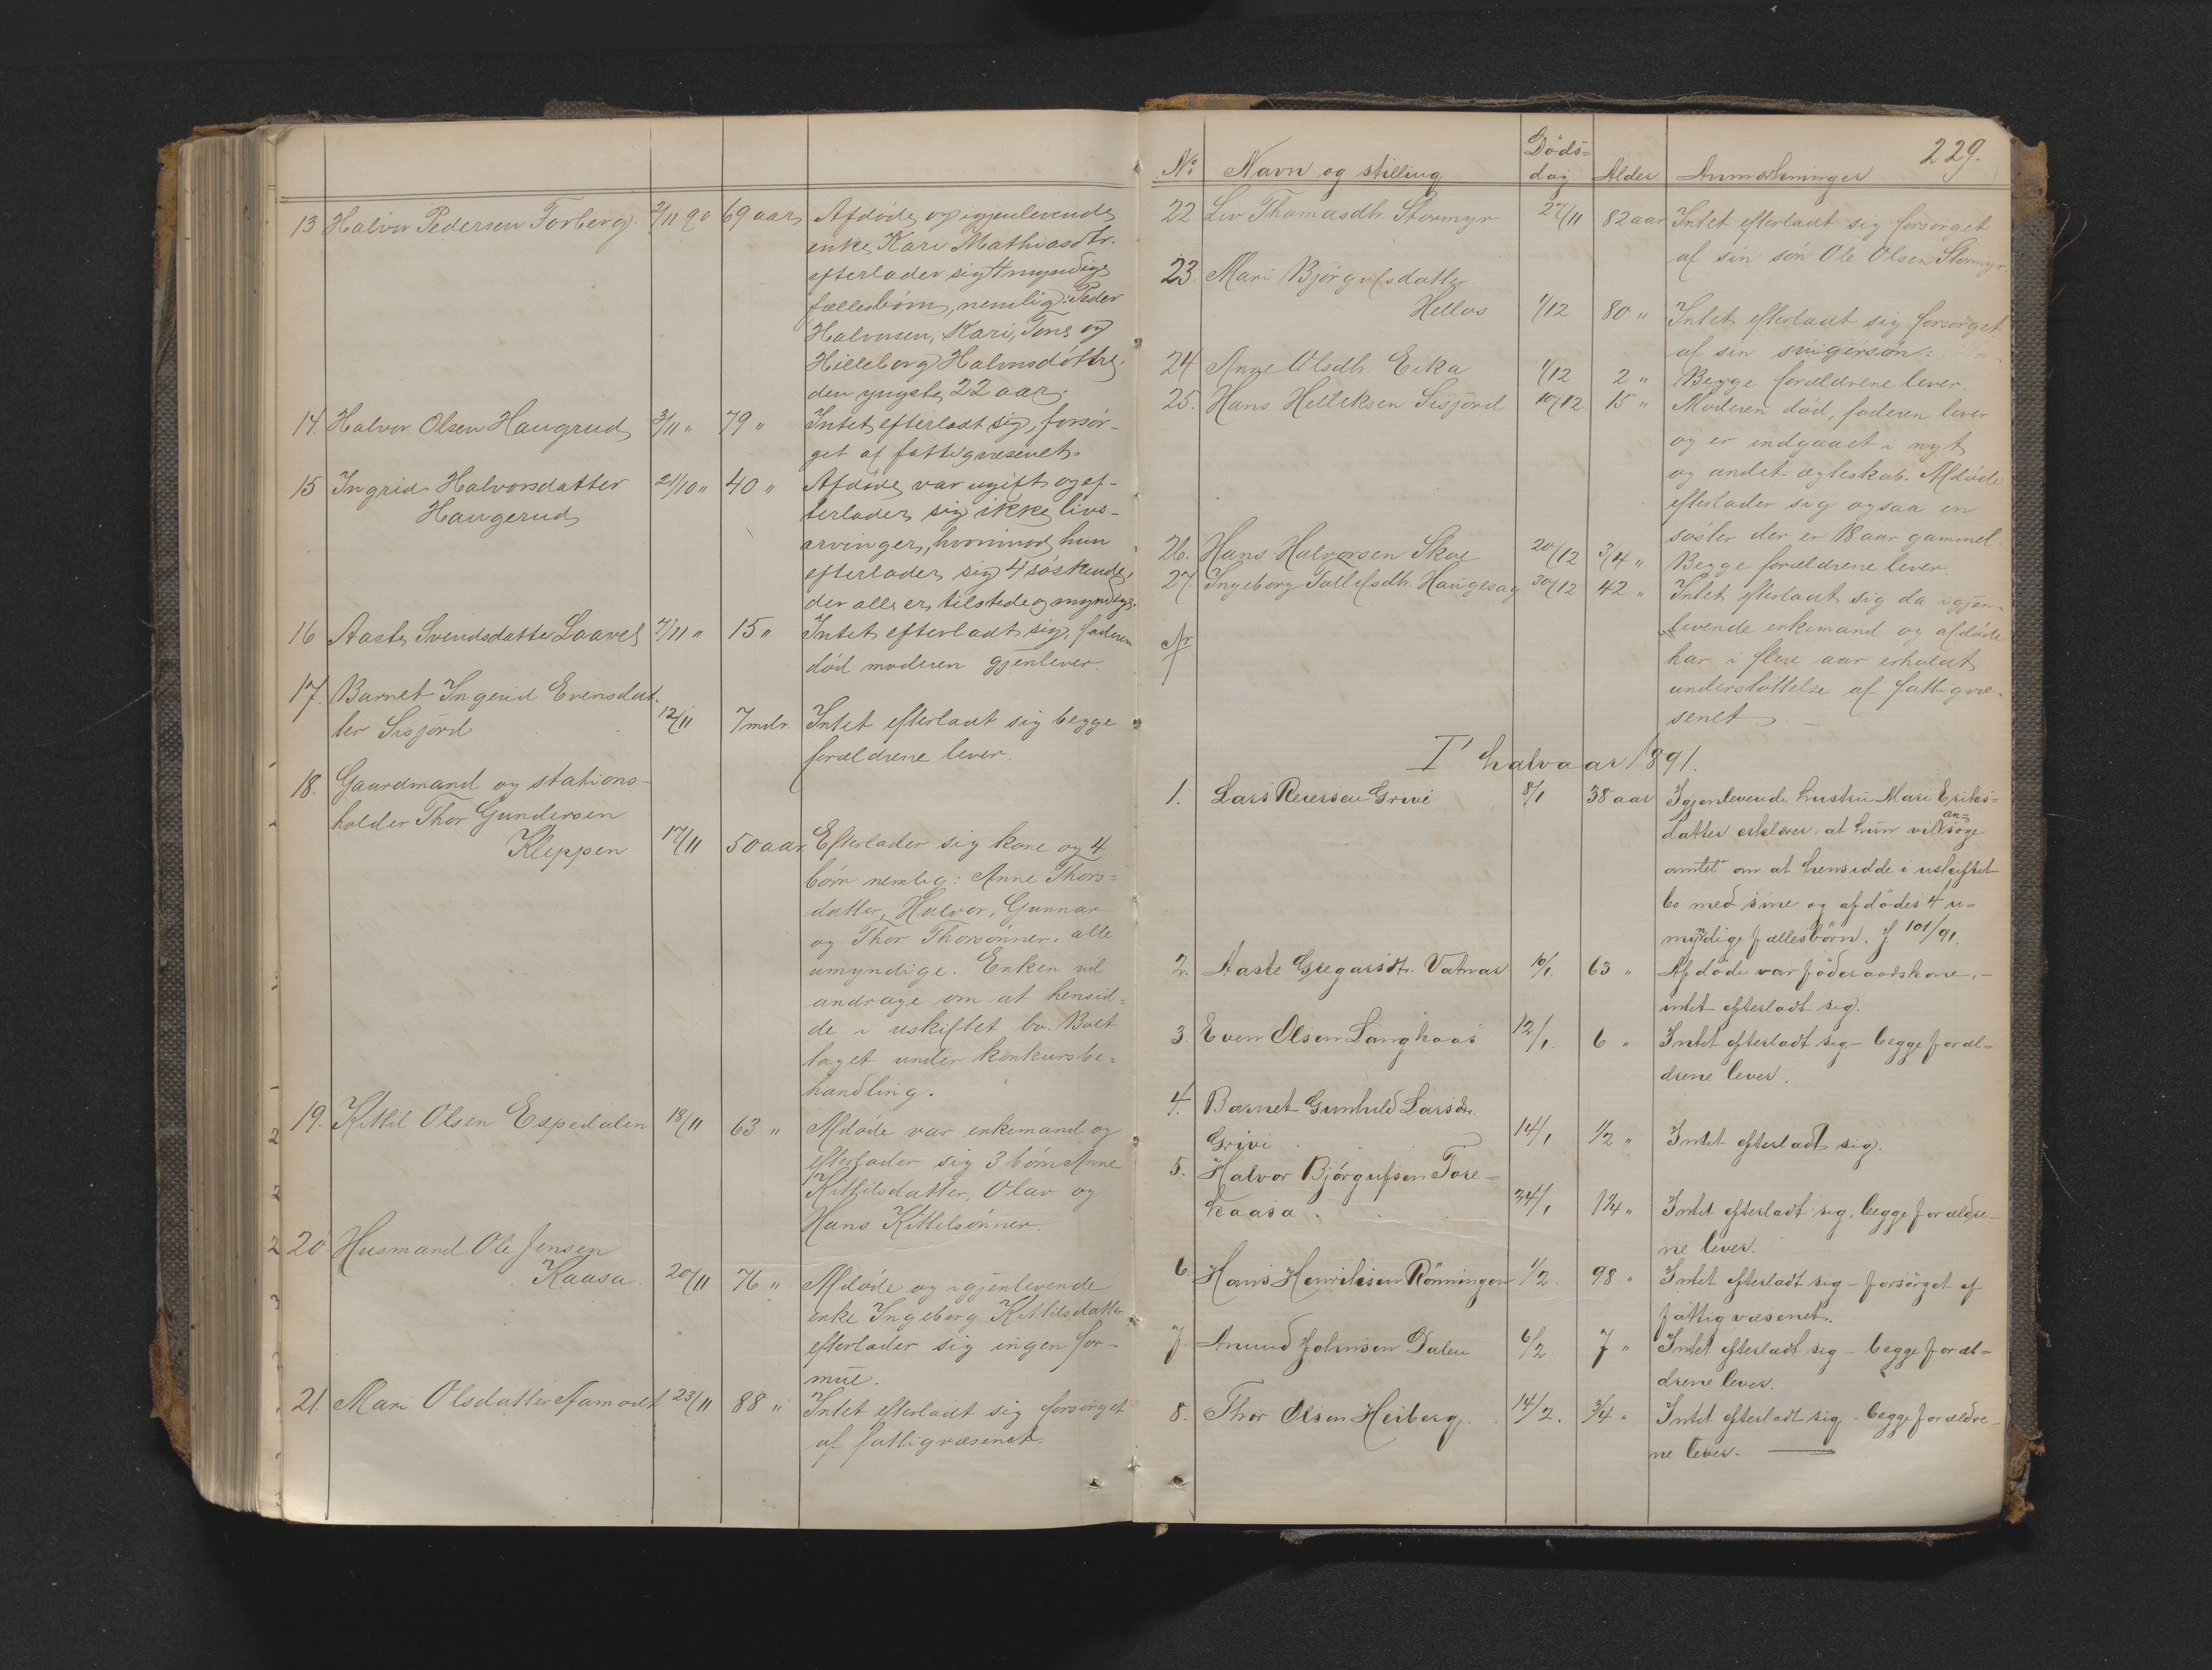 13 Halvor Pedersen Forberg. 2/11 90 69 aar Afdöde og igjenlevende
enke Kari Mathiasdtr.
efterlader sig 4 myndige
fællesbörn, nemlig: Peder
Halvorsen, Kari, Tone og
Hilleborg Halvorsdöttre.
den yngste 22 aar.
14. Halvor Olsen Haugrud 3/11 " 79 " Intet efterladt sig, forsör-
get af fattigvæsenet.
15 Ingrid Halvorsdatter 21/10 " 40 " Afdöde var ugift og ef-
Haugerud terlader sig ikke livs-
arvinger, hvorimod hun
efterlader sig 4 söskende,
der alle er tilstede og myndige.
16 Aaste Svendsdatter Laavel 7/11 " 15 " Intet efterladt sig, faderen
död moderen gjenlever.
17. Barnet Ingerid Evensdat-
ter Sisjord 12/11 7 mdr. Intet efterladt sig begge
forældrene lever.
18. Gaardmand og stations-
holder Thor Gundersen
Kleppen 17/11 50 aar Efterlader sig kone og 4
börn nemlig: Anne Thors=
datter, Halvor, Gunnar
og Thor Thorsönner, alle
umyndige. Enken vil
andrage om at hensid=
de i uskiftet bo. Boet
taget under konkursbe=
handling.
19. Kittil Olsen Espedalen 18/11 63 " Afdöde var enkemand og
efterlader sig 3 börn Anne
Kittilsdatter, Olav og
Hans Kittilsönner.
20 Husmand Ole Jensen
Kaasa 20/11 76 " Afdöde og igjenlevende
enke Ingeborg Kittilsdatter
efterlader sig ingen for-
mue.
21. Mari Olsdatter Aamodt 23/11 88 " Intet efterladt sig forsörget
af fattigvæsenet.
229.
No Navn og stilling Döds=
dag Alder Anmærkninger
22 Liv Thomasdtr. Stormyr 27/11 82 aar Intet efterladt sig forsörget
af sin sön Ole Olsen Stormyr
23. Mari Björgufsdatter
Hellos 1/12 80 " Intet efterladt sig forsörget
af sin svigersön.
24 Anne Olsdtr. Eika 1/12 2 " Begge forældrene lever.
25. Hans Helleksen Sisjord 10/12 15 " Moderen död, faderen lever
og er indgaaet i nyt
og andet ægteskab. Afdöde
efterlader sig ogsaa en
söster der er 18 aar gammel.
26. Hans Halvorsen Skoe 20/12 3/4 " Begge forældrene lever
27. Ingeborg Tallefsdtr. Haugesag 30/12 42 " Intet efterladt sig da igjen-
levende enkemand og afdöde
har i flere aar erholdt
understöttelse af fattigvæ-
senet
I' halvaar 1891.
1. Lars Reiersen Grivi 8/1 38 aar Igjenlevende hustru Mari Eriks=
datter erklærer at hun vil an=söge
amtet om at hensidde i uskiftet
bo med sine og afdödes 4 u=
myndige fællesbörn. J 101/91.
2. Aaste Gregarsdtr. Vatnar 10/1. 63 " Afdöde var föderaadskone, -
intet efterladt sig.
3. Even Olsen Langkaas 12/1. 6 " Intet efterladt sig - begge foræl=
drene lever.
4. Barnet Gunhild Larsdtr.
Grivi 14/1 1/2 " Intet efterladt sig.
5. Halvor Björgufsen Tore=
kaasa. 24/1 1 1/4 " Intet efterladt sig, begge forældre-
ne lever.
6. Hans Henriksen Rönningen 1/2. 98 " Intet efterladt sig - forsörget af
fattigvæsenet.
7. Amund Johnsen Dalen 6/2 7 " Intet efterladt sig - begge foræl-
drene lever.
8. Thor Olsen Heiberg. 14/2. 3/4 " Intet efterladt sig - begge forældre-
ne lever.